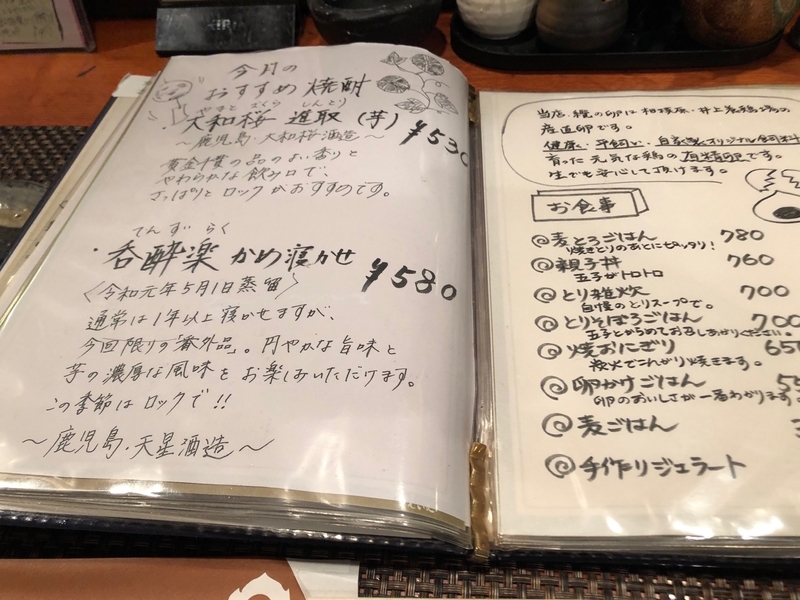 KIRIN
今月の
おすすめ 焼酎
やまと ざくら しんとり
・大和桜 進取 (芋)
¥530
～鹿児島・大和桜酒造～
黄金千貫の品のよい香りと
やわらかな飲み口で、
さっぱりとロックがおすすめです。
てんすい らく
・呑酔楽 かめ寝かせ
¥580
〈令和元年5月1日蒸留〉
通常は1年以上寝かせますが、
今回限りの「番外品」。円やかな旨味と
芋の濃厚な風味をお楽しみいただけます。
この季節はロックで!!
～鹿児島・天星酒造～
産直卵です。
育った元気な鶏の有精卵です。
生でも安心して頂けます。
お食事
麦とろごはん 780
焼とりのあとにピッタリ!
親子丼 760
玉子がトロトロ
とり雑炊 700
自慢のとりスープで。
とりそぼろごはん 700
玉子とからめてお召しあがりください。
焼おにぎり 650
炭火でこんがり焼きます。
卵かけごはん
卵のおいしさが一番わかります。
麦ごはん
手作りジェラート